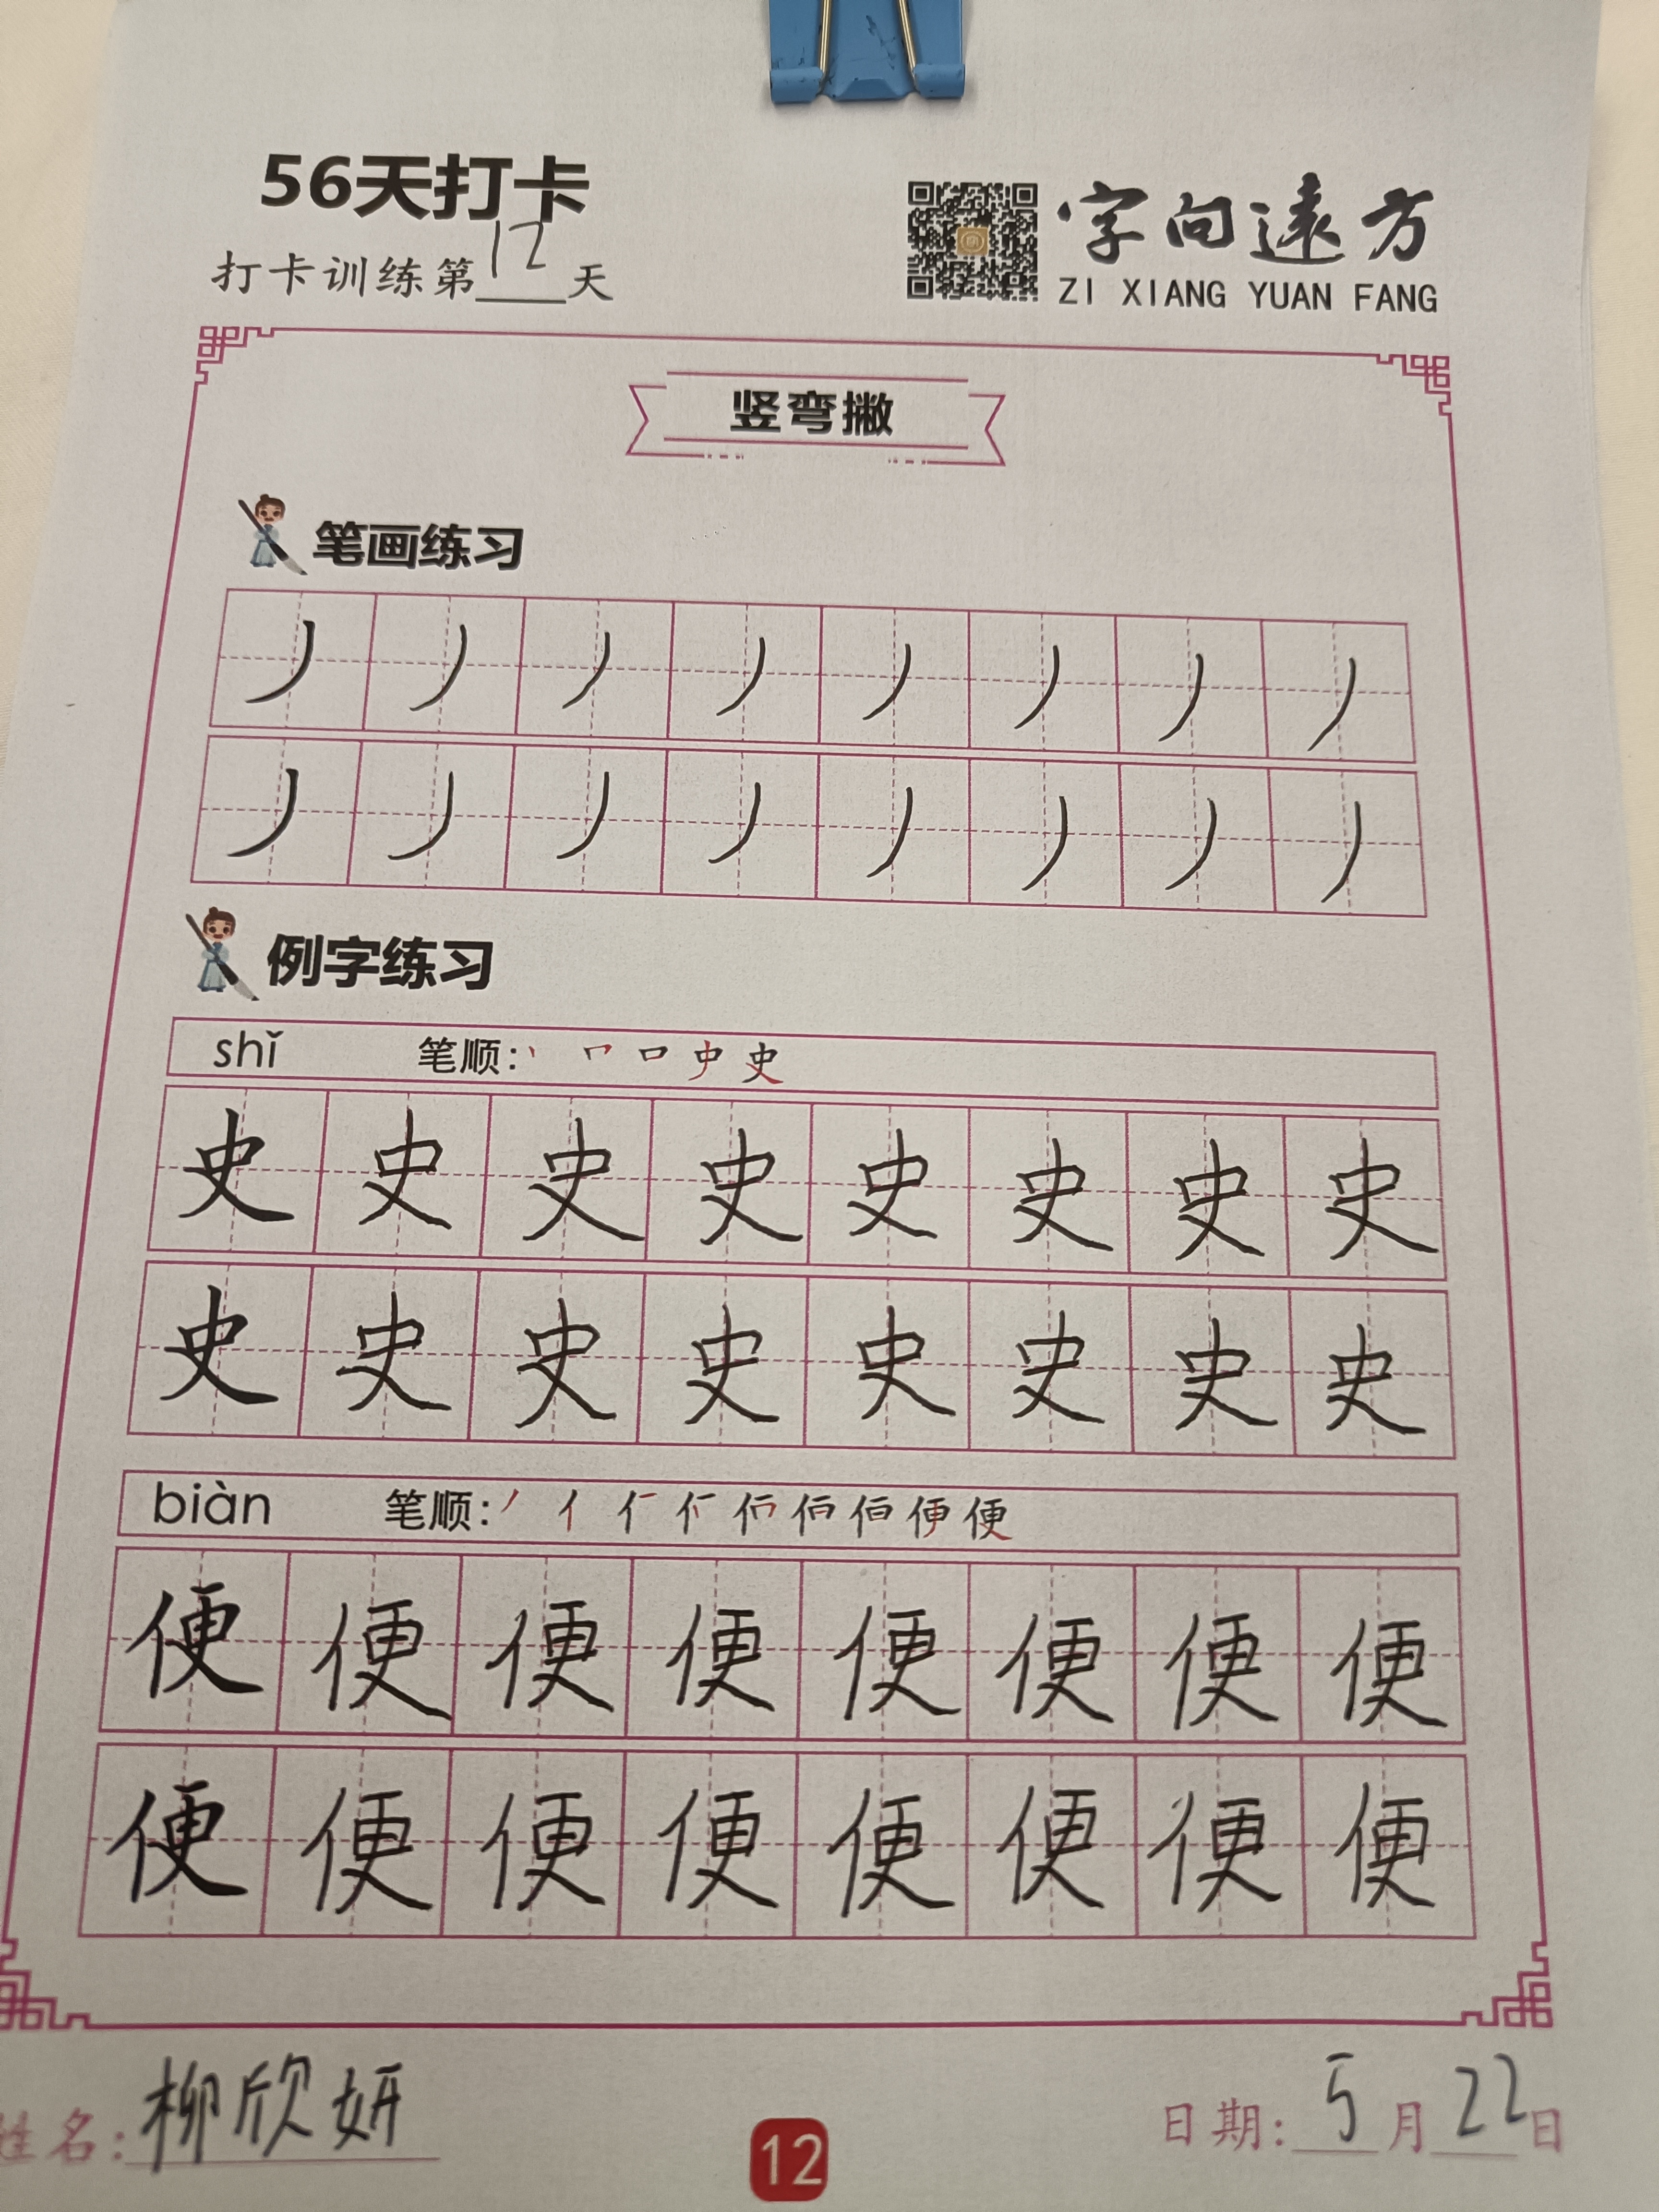 56天打卡
打卡训练第12天
字向遠方
ZI XIANG YUAN FANG
竖弯撇
笔画练习
丿 丿 丿 丿 丿 丿 丿 丿
丿 丿 丿 丿 丿 丿 丿 丿
例字练习
shǐ 笔顺:
史 史 史 史 史 史 史 史
史 史 史 史 史 史 史 史
biàn 笔顺:
便 便 便 便 便 便 便 便
便 便 便 便 便 便 便 便
姓名:柳欣妍
12
日期:5月22日